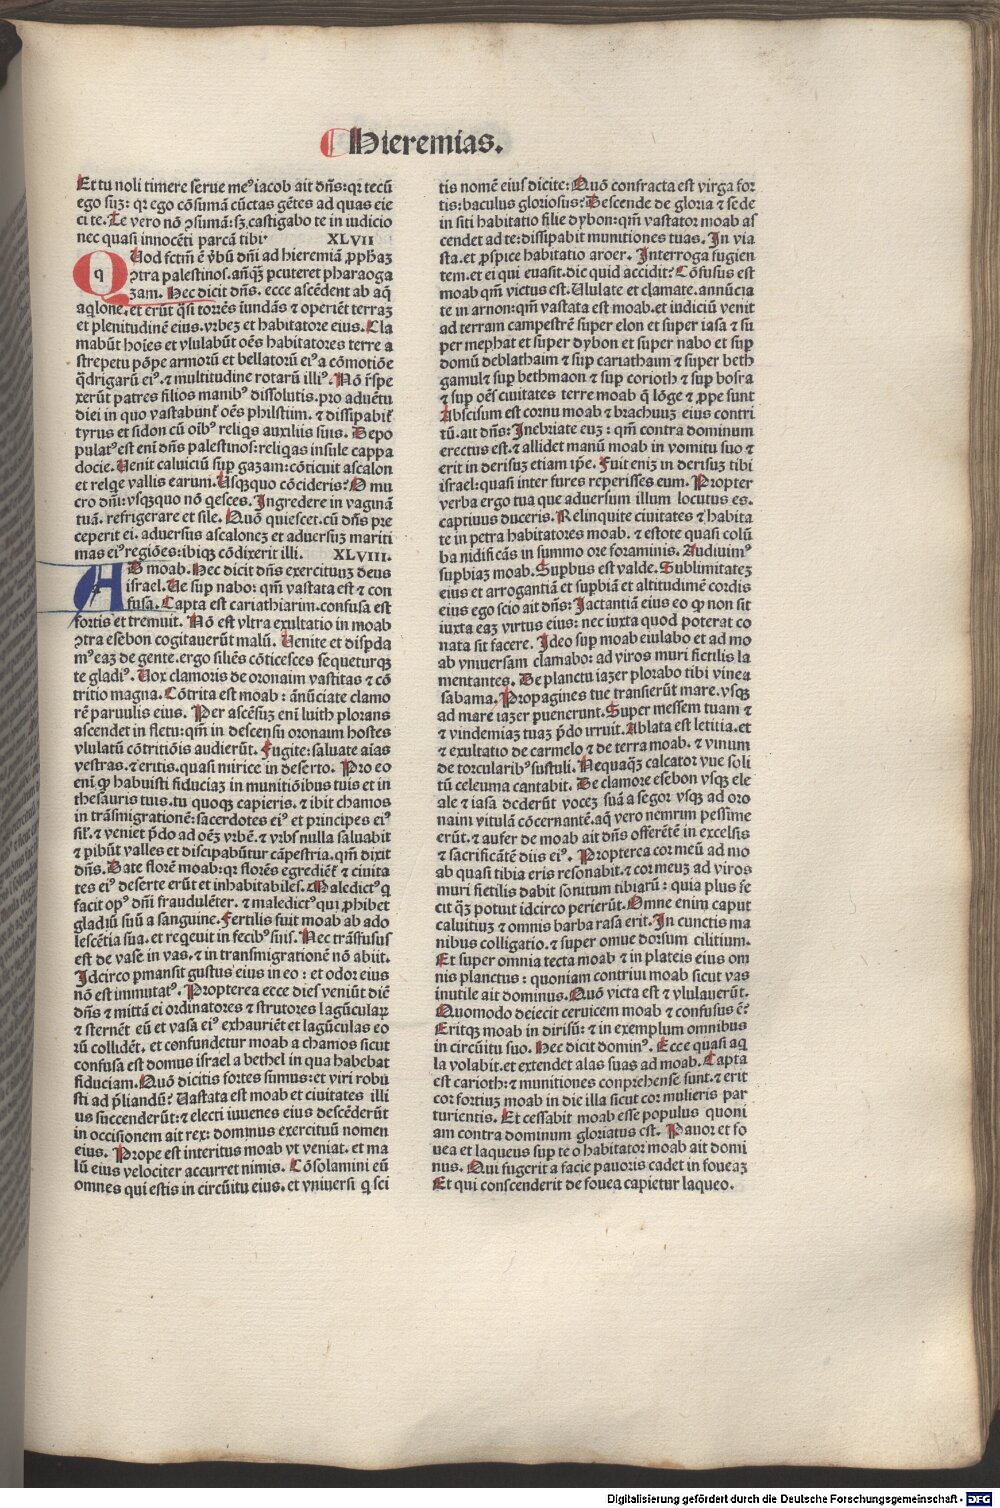 Hieremias.
Et tu noli timere serue meꝰ iacob ait dñs: qꝛ tecũ
ego suꝫ: qꝛ ego cõsumã cũctas gẽtes ad quas eie
ci te. Te vero nõ ꝯsumã: sꝫ castigabo te in iudicio
nec quasi innocẽti parcã tibi. XLVII
QUod fctm̃ ẽ v̓bũ dñi ad hieremiã ꝓph̃aꝫ
ꝯtra palestinos. añq̃ꝫ ꝑcuteret pharao ga
zam. Hec dicit dñs. ecce ascẽdent ab aq̃
aq̇lone. et erũt q̃si torrẽs iũndãs ⁊ operiẽt terraꝫ
et plenitudinẽ eius. vrbeꝫ et habitatore eius. Cla
mabũt hoies et vlulabũt oẽs habitatores terre a
strepetu põpe armorũ et bellatorũ eiꝰ a cõmotiõe
q̃drigarũ eiꝰ. ⁊ multitudine rotarũ illiꝰ. Nõ r̃spe
xerũt patres filios manibꝰ dissolutis. pro aduẽtu
diei in quo vastabunt̃ oẽs philstiim. ⁊ dissipabit̃
tyrus et sidon cũ oĩbꝰ reliq̇s auxiliis suis. Depo
pulatꝰ est eni dñs palestinos: reliq̇as insule cappa
docie. Uenit caluiciũ suꝑ gazam: cõticuit ascalon
et relq̇e vallis earum. Usq̃quo cõcideris? O mu
cro dñi: vsqꝫquo nõ q̇esces. Ingredere in vaginã
tuã. refrigerare et sile. Quõ quiescet. cũ dñs pre
ceperit ei. aduersus ascaloneꝫ et aduersuꝫ mariti
mas eiꝰ regiões: ibiqꝫ cõdixerit illi. XLVIII.
AD moab. Hec dicit dñs exercituuꝫ deus
israel. Ue suꝑ nabo: qm̃ vastata est ⁊ con
fusa. Capta est cariathiarim. confusa est
fortis et tremuit. Nõ est vltra exultatio in moab
ꝯtra esebon cogitauerũt malũ. Uenite et dispda
mꝰ eaꝫ de gente. ergo silẽs cõticesces sequeturqꝫ
te gladiꝰ. Uox clamoris de oronaim vastitas ⁊ cõ
tritio magna. Cõtrita est moab: ãnũciate clamo
rẽ paruulis eius. Per ascẽsuꝫ eni luith plorans
ascendet in fletu: qm̃ in descensu oronaim hostes
vlulatũ cõtritiõis audierũt. Fugite: saluate aĩas
vestras. ⁊ eritis. quasi mirice in deserto. Pro eo
eni ꝙ habuisti fiduciaꝫ in munitiõibus tuis et in
thesauris tuis. tu quoqꝫ capieris. ⁊ ibit chamos
in trãsmigrationẽ: sacerdotes eiꝰ et principes eiꝰ
sil̃. ⁊ veniet p̃do ad oẽꝫ vrbẽ. ⁊ vrbs nulla saluabit̃
⁊ ꝑibũt valles et discipabũtur cãpestria. qm̃ dixit
dñs. Date florẽ moab: qꝛ florẽs egrediet̃ ⁊ ciuita
tes eiꝰ deserte erũt et inhabitabiles. Maledictꝰ q̇
facit opꝰ dñi fraudulẽter. ⁊ maledictꝰ qui ꝓhibet
gladiũ suũ a sanguine. Fertilis fuit moab ab ado
lescẽtia sua. et req̇euit in fecibꝰ suis. Nec trãsfusus
est de vase in vas. ⁊ in transmigrationẽ nõ abiit.
Idcirco ꝑmansit gustus eius in eo: et odor eius
nõ est immutatꝰ. Propterea ecce dies veniũt dicit
dñs ⁊ mittã ei ordinatores ⁊ strutores lagũculaꝝ
⁊ sternẽt eũ et vasa eiꝰ exhauriẽt et lagũculas eo
rũ collidẽt. et confundetur moab a chamos sicut
confusa est domus israel a bethel in qua habebat
fiduciam. Quõ dicitis fortes sumus: et viri robu
sti ad p̃liandũ? Uastata est moab et ciuitates illi
us succenderũt: ⁊ electi iuuenes eius descẽderũt
in occisionem ait rex: dominus exercituũ nomen
eius. Prope est interitus moab vt veniat. et ma
lũ eius velociter accurret nimis. Cõsolamini eũ
omnes qui estis in circũitu eius. et vniuersi q̇ sci
tis nomẽ eius dicite: Quõ confracta est virga for
tis: baculus gloriosus? Descende de gloria ⁊ sede
in siti habitatio filie dybon: qm̃ vastator moab as
cendet ad te: dissipabit munitiones tuas. In via
sta. et ꝓspice habitatio aroer. Interroga fugien
tem. et ei qui euasit. dic quid accidit? Cõfusus est
moab qm̃ victus est. Ululate et clamate. annũcia
te in arnon: qm̃ vastata est moab. et iudiciũ venit
ad terram campestrẽ super elon et super iasa ⁊ su
per mephat et super dybon et super nabo et suꝑ
domũ deblathaim ⁊ suꝑ cariathaim ⁊ super beth
gamul⁊ suꝑ bethmaon ⁊ suꝑ corioth ⁊ suꝑ bosra
⁊ suꝑ oẽs ciuitates terre moab q̃ lõge ⁊ ꝓpe sunt
Abscisum est cornu moab ⁊ brachuuꝫ eius contri
tũ. ait dñs: Inebriate euꝫ: qm̃ contra dominum
erectus est. ⁊ allidet manũ moab in vomitu suo ⁊
erit in derisuꝫ etiam ip̃e. Fuit eniꝫ in derisuꝫ tibi
israel: quasi inter fures reperisses eum. Propter
verba ergo tua que aduersum illum locutus es.
captiuus duceris. Relinquite ciuitates ⁊ habita
te in petra habitatores moab. ⁊ estote quasi colũ
ba nidificãs in summo ore foraminis. Audiuimꝰ
suꝑbiaꝫ moab. Suꝑbus est valde. Sublimitateꝫ
eius et arrogantiã et suꝑbiã et altitudinẽ cordis
eius ego scio ait dñs: Jactantiã eius eo ꝙ non sit
iuxta eaꝫ virtus eius: nec iuxta quod poterat co
nata sit facere. Ideo suꝑ moab eiulabo et ad mo
ab vniuersam clamabo: ad viros muri fictilis la
mentantes. De planctu iazer plorabo tibi vinea
sabama. Propagines tue transierũt mare. vsqꝫ
ad mare iazer ꝑuencrunt. Super messem tuam ⁊
⁊ vindemiaꝫ tuaꝫ p̃do irruit. Ablata est letitia. et
⁊ exultatio de carmelo ⁊ de terra moab. ⁊ vinum
de torcularibꝰ sustuli. Nequaqꝫ calcator vue soli
tũ celeuma cantabit. De clamore esebon vsqꝫ ele
ale ⁊ iasa dederũt voceꝫ suã a segor vsqꝫ ad oro
naim vitulã cõcernantẽ. aq̃ vero nemrim pessime
erũt. ⁊ aufer de moab ait dñs offerẽtẽ in excelsis
⁊ sacrificãtẽ diis eiꝰ. Propterea cor meũ ad mo
ab quasi tibia eris resonabit. ⁊ cor meuꝫ ad viros
muri fictilis dabit sonitum tibiarũ: quia plus fe
cit qꝫ potuit idcirco perierũt. Omne enim caput
caluitiuꝫ ⁊ omnis barba rasa erit. In cunctis ma
nibus colligatio. ⁊ super omne dorsum cilitium.
Et super omnia tecta moab ⁊ in plateis eius om
nis planctus: quoniam contriui moab sicut vas
inutile ait dominus. Quõ victa est ⁊ vlulauerũt.
Quomodo deiecit ceruicem moab ⁊ confusus ẽ?
Eritqꝫ moab in dirisũ: ⁊ in exemplum omnibus
in circũitu suo. Hec dicit dominꝰ. Ecce quasi aq̇
la volabit. et extendet alas suas ad moab. Capta
est carioth: ⁊ munitiones conprehense sunt. ⁊ erit
cor fortiuꝫ moab in die illa sicut cor mulieris par
turientis. Et cessabit moab esse populus quoni
am contra dominum gloriatus est. Pauor et fo
uea et laqueus sup te o habitator moab ait domi
nus. Qui fugerit a facie pauoris cadet in foueaꝫ
Et qui conscenderit de fouea capietur laqueo.
Digitalisierung gefördert durch die Deutsche Forschungsgemeinschaft - DFG